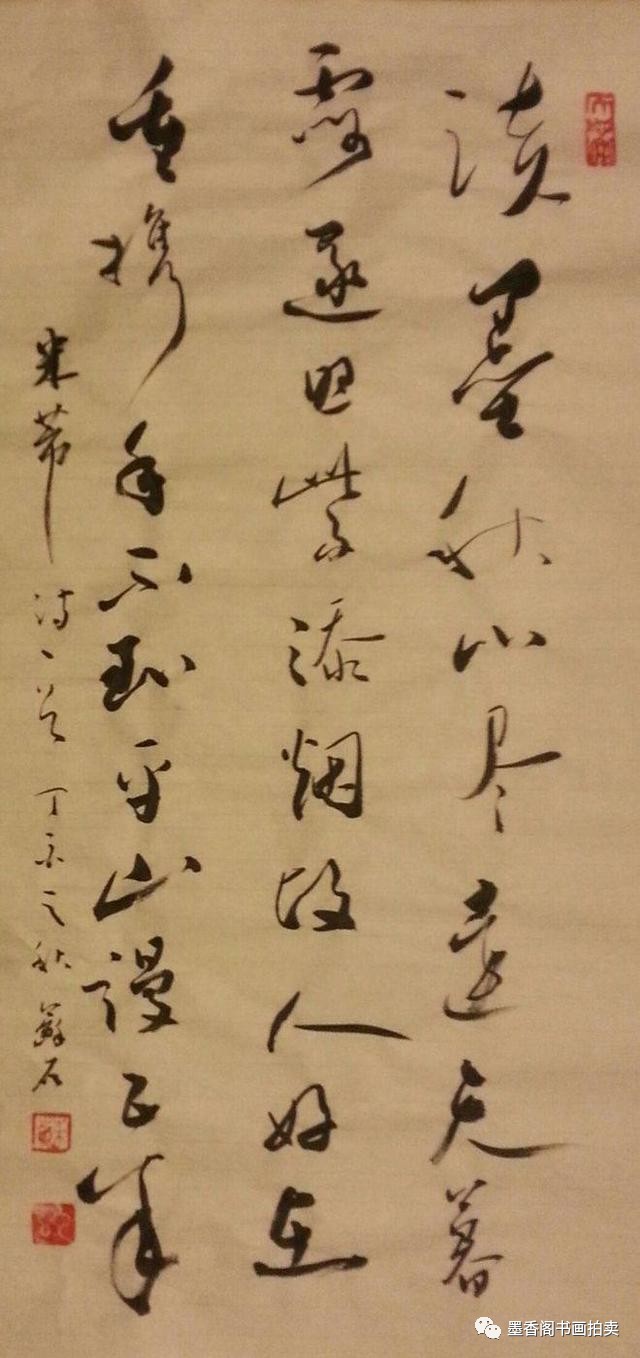 淡墨秋山尽遠天暮
霞還照紫添烟故人好在
重携手不到平山謾五年
米芾诗一首 丁亥之秋 蘇石
墨香阁书画拍卖